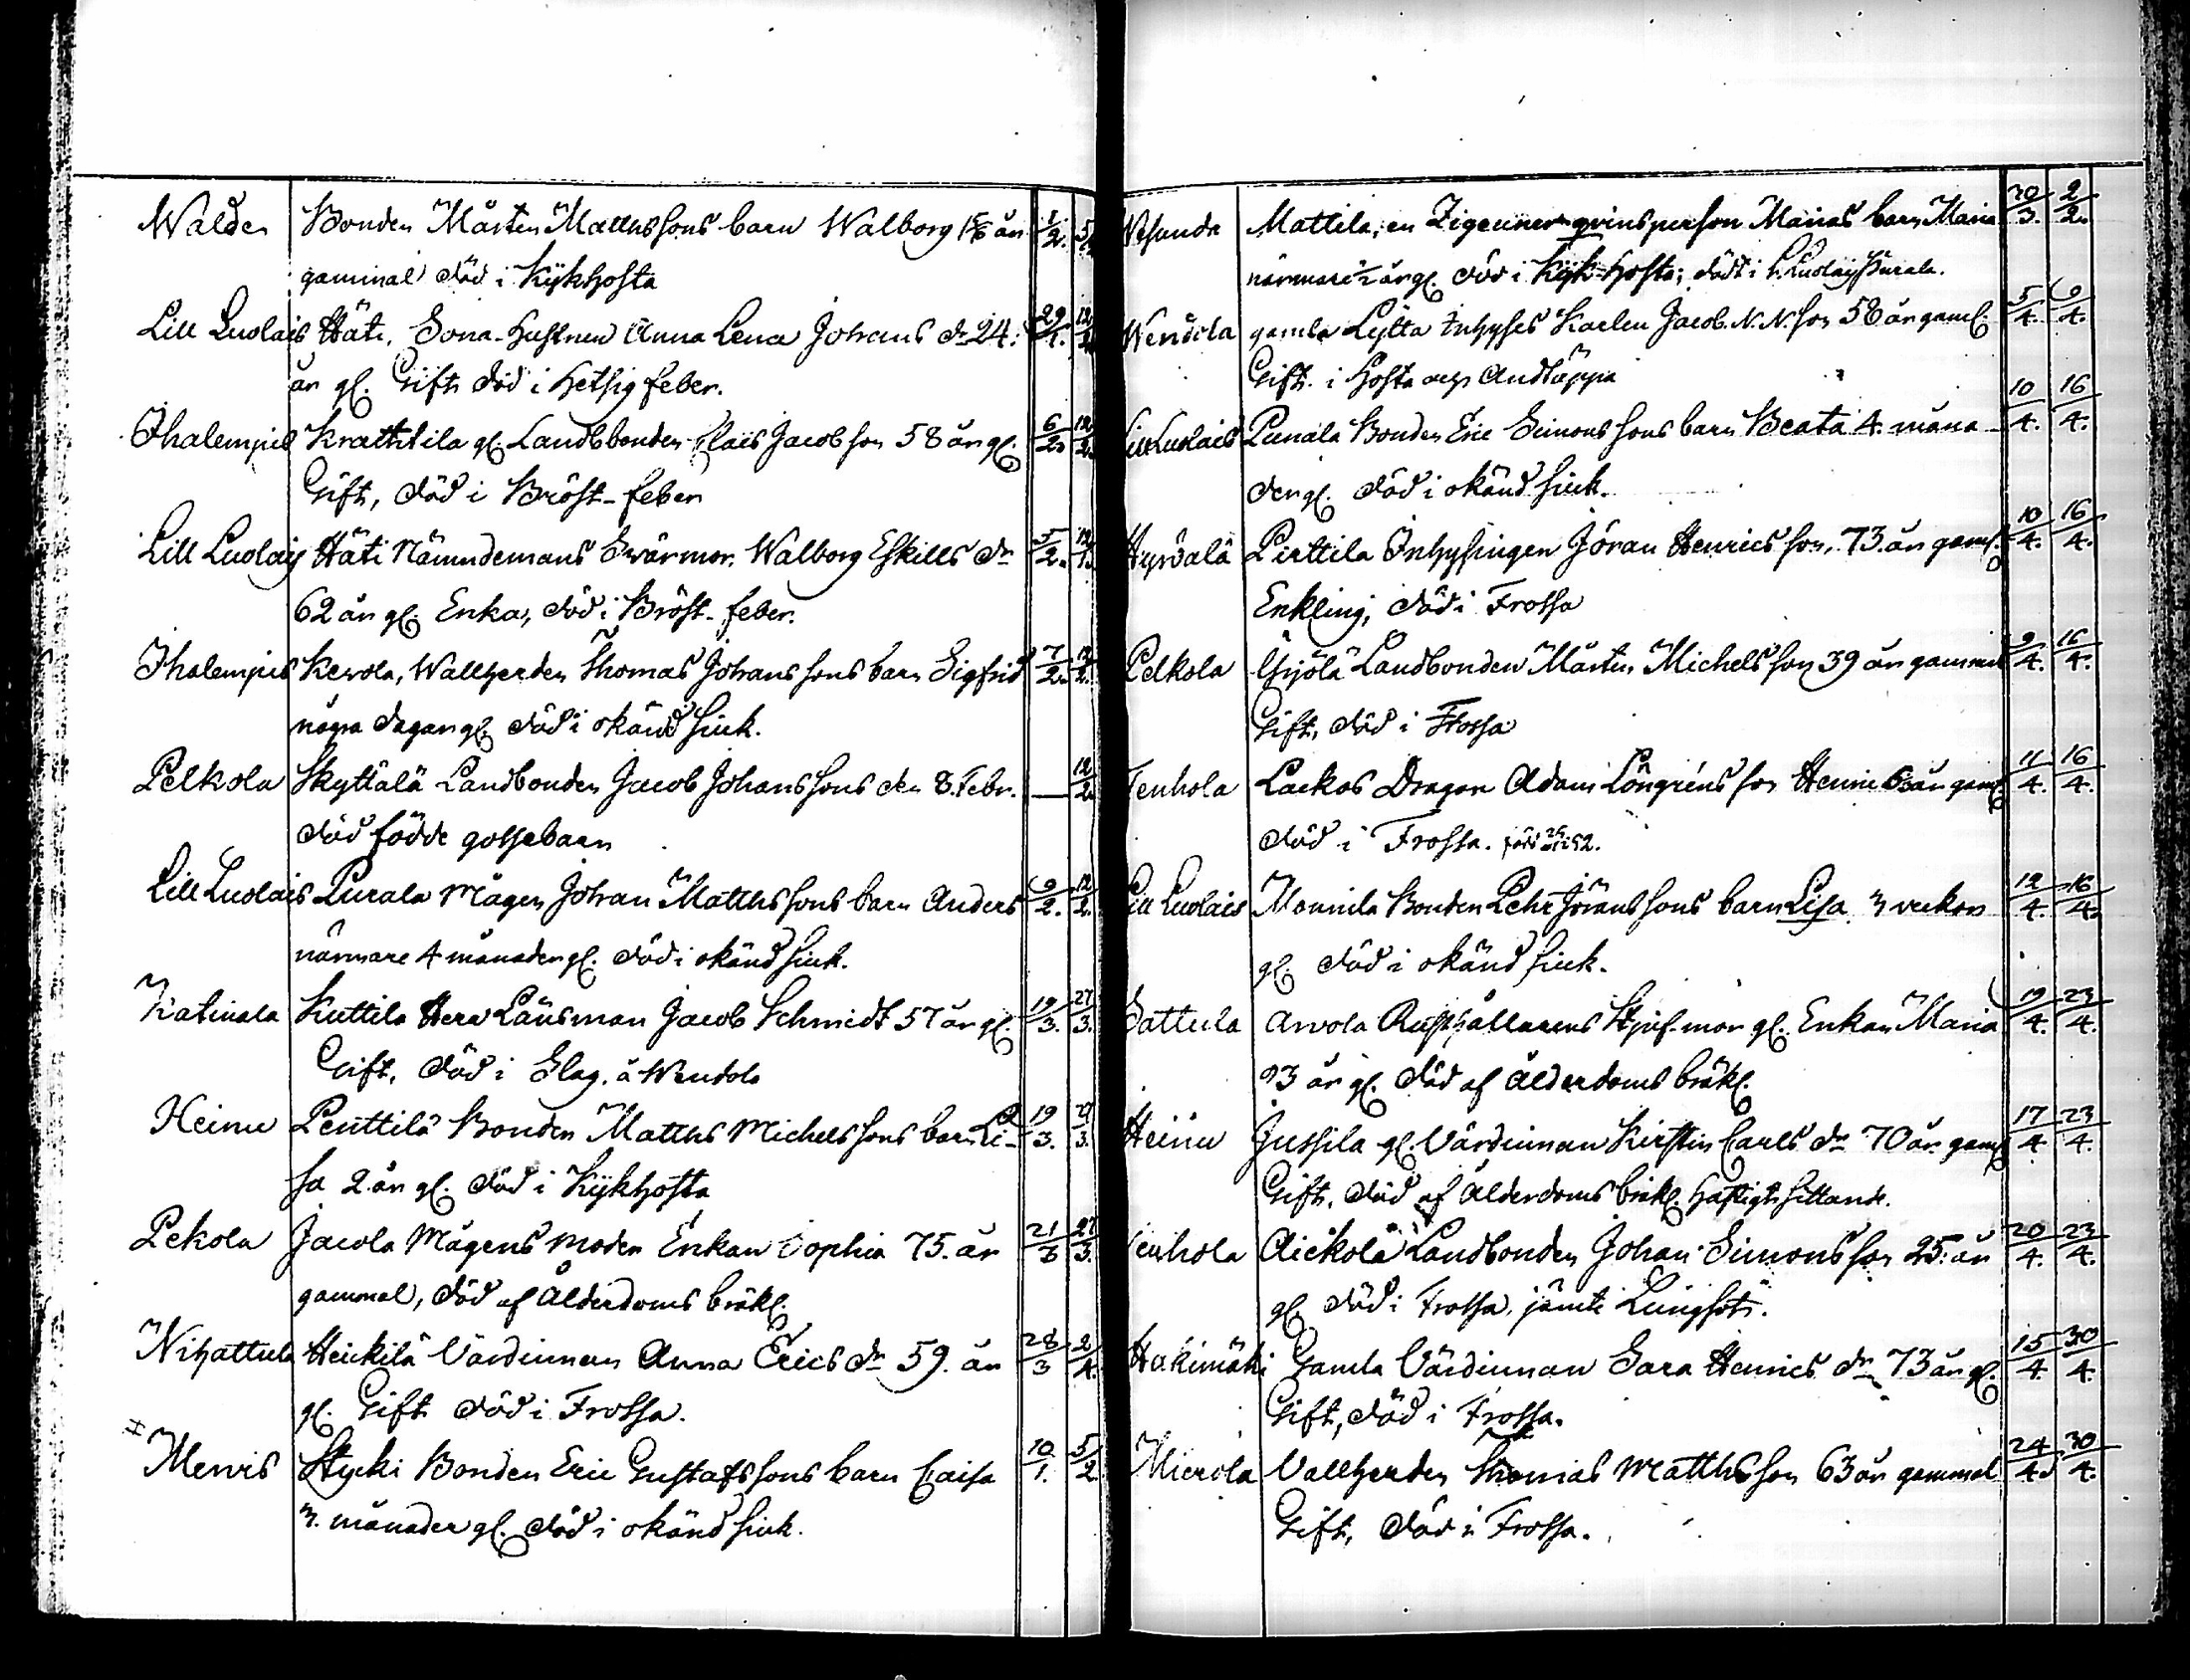 Walde Bonden Mårten Matthssons barn Walborg 1 5/6 år 1/2. 5/2.
gammal död i Kykhosta
Lill Luolais Häti, Sona-hustrun Anna Lena Johans dr 24. 29/1. 12/2.
år gl. Gift död i hetsig feber.
Ihalempis Krathtila gl. Landbbonden Clais Jacobson 58 år gl. 6/2. 12/2.
Gift, död i Bröst-feber
Lill Luolais Häti Nämndemans Swärmor Walborg Eskills dr 5/2. 12/
62 år gl. Enka, död i Bröst-feber.
Ihalempis Kerola, Wallherden Thomas Johanssons barn Sigfrid 7/2. 12/2.
några dagar gl. död i okänd siuk.
Pelkola Skyttälä Landbonden Jacob Johanssons den 8. Febr. — 12/2.
död födde gossebarn
Lill Luolais Purala Mågen Johan Matthssons barn Anders 9/2. 12/2.
närmare 4 månader gl. död i okänd siuk.
Katinala Kuttila Herr Länsman Jacob Schmidt 57 år gl. 19/3. 27/3.
Gift, död i Slag. å Wendola
Heinu Penttilä Bonden Matths Michelssons barn Li- 19/3. 27/3.
sa 2 år gl. död i Kykhosta
Pekola Jacola Mågens moder Enkan Sophia 75. år 21/3 27/3.
gammal, död af Ålderdoms bräkl.
Nihattula Heickilä Värdinnan Anna Erics dr 59. år 28/3 2/4.
gl. Gift död i Frossa.
# Mervis Stycki Bonden Eric Gustafssons barn Caisa 10/1. 5/2
3. månader gl. död i okänd siuk.
Wesunda Mattila, en Zigeuner qvinsperson Marias barn Maria 30/3. 2/2.
närmare 1/2 år gl. död i Kyk-hosta; född i L. Luolais Purala.
Wendola gamla Lytta Inhyses Karlen Jacob N.N. son 58 år gaml. 5/4. 9/4.
Gift. i hosta och Andtäppa
Lill Luolais Punala Bonden Eric Simonssons barn Beata 4. måna- 10/4. 16/4.
der gl. död i okänd siuk.
Hyrvälä Pirttila Inhysingen Jöran Henricsson, 73. år gaml. 10/4. 16/4.
Enkling, död i Frossa
Pelkola Landbonden Mårten Michelsson 39 år gammal 9/4. 16/4.
Gift, död i Frossa
Tenhola Lackos Dragon Adam Löngréns son Henric år gaml. 11/4. 16/4.
död i Frossa. född
Lill Luolais Monnila Bonden Pehr Jöranssons barn Lisa 3 veckor 12/4. 16/4.
gl. död i okänd siuk.
Sattula Arvola Rusthållarens Styfmor gl. Enkan Maria 19/4. 23/4.
93 år gl. död af Ålderdoms bräkl.
Heinu Jussila gl. Värdinnan Kirstin Carls dr 70 år gaml. 17/4 23/4.
Gift, död af Ålderdoms bräkl. häftigt hittande.
Tenhola Aickola Landbonden Johan Simonsson 25. år 20/4. 23/4.
gl. död i Frossa, jämte Lungsot.
Hakimäki Gamla Värdinnan Sara Henrics dr 73 år gl. 15/4. 30/4.
Gift, död i Frossa.
Mierola Vallherden Thomas Matthsson 63 år gammal 24/4. 30/4.
Gift, död i Frossa.